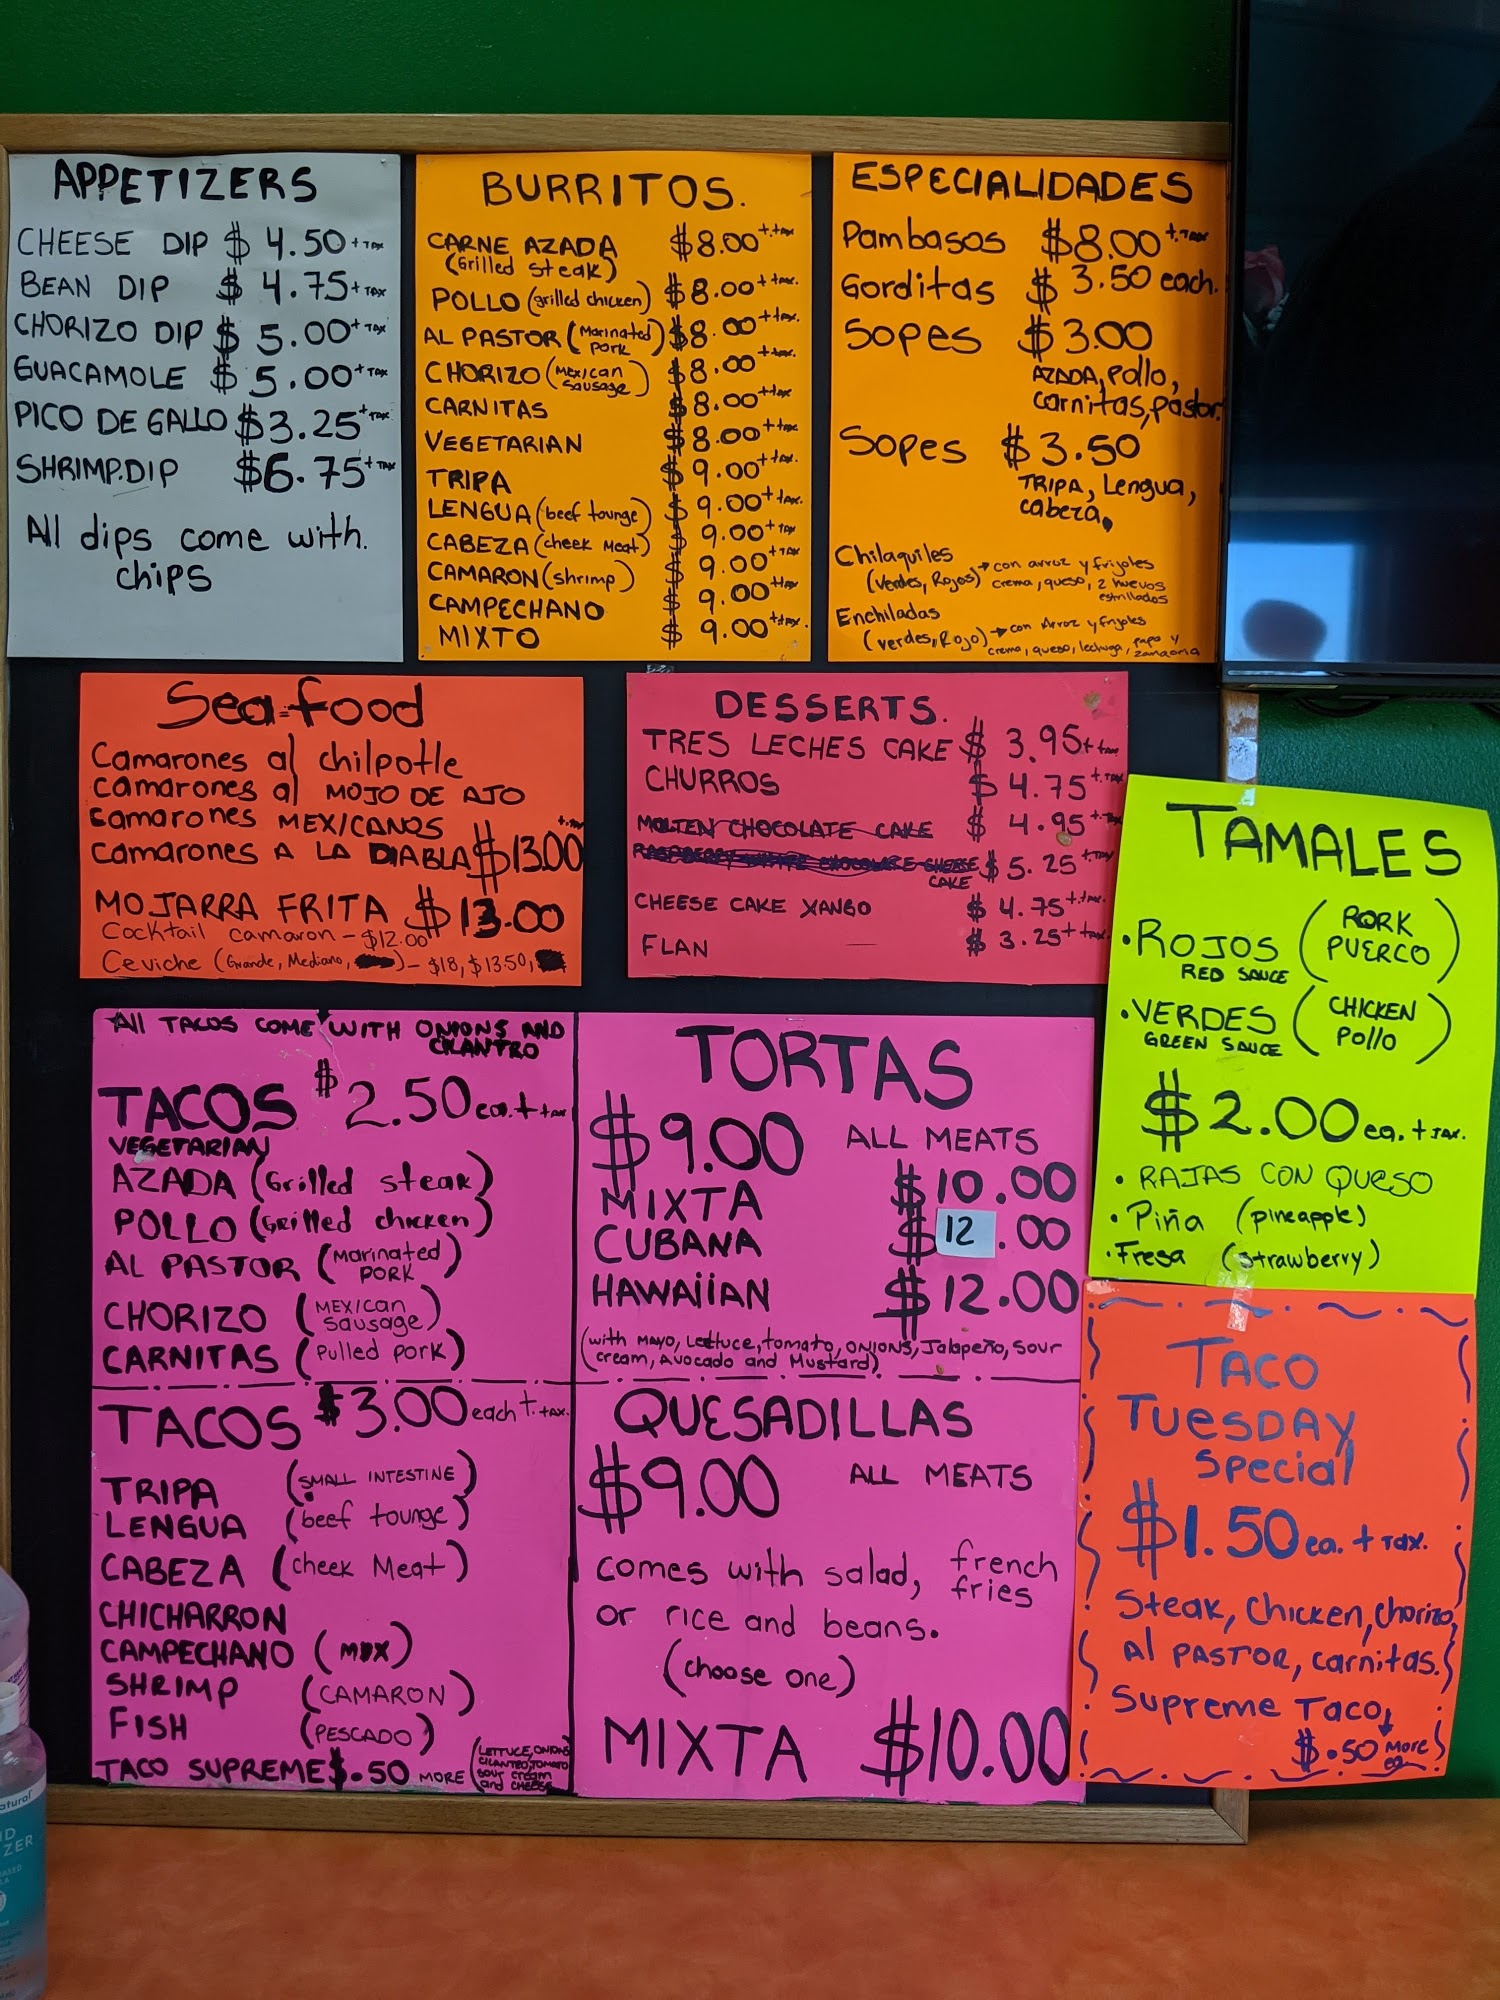 APPETIZERS
CHEESE DIP $ 4.50 + TAX
BEAN DIP $ 4.75 + TAX
CHORIZO DIP $ 5.00 + TAX
GUACAMOLE $ 5.00 + TAX
PICO DE GALLO $3.25 + TAX
SHRIMP.DIP $6.75 + TAX
All dips come with.
chips
BURRITOS.
CARNE AZADA $8.00 + tax
(Grilled steak)
POLLO (grilled chicken) $8.00 + tax.
AL PASTOR (Marinated pork) $8.00 + tax.
CHORIZO (Mexican sausage) $8.00 + tax.
CARNITAS $8.00 + tax
VEGETARIAN $8.00 + tax
TRIPA $9.00 + tax.
LENGUA (beef tounge) $9.00 + tax.
CABEZA (cheek Meat) $9.00 + tax
CAMARON (shrimp) $9.00 + tax
CAMPECHANO $9.00 + tax
MIXTO $9.00 + tax.
ESPECIALIDADES
Pambasos $8.00 + tax
Gorditas $3.50 each.
Sopes $3.00
AZADA, Pollo,
Carnitas, pastor.
Sopes $3.50
TRIPA, Lengua,
cabeza.
Chilaquiles
(Verdes, Rojos) → con arroz y frijoles
crema, queso, 2 huevos
estrillados
Enchiladas
(verdes, Rojo) → con Arroz y frijoles
crema, queso, lechuga, papa y
zanaoria
Sea-food
Camarones al chilpotle
Camarones al MOJO DE AJO
Camarones MEXICANOS
Camarones A LA DIABLA $13.00 + tax
MOJARRA FRITA $13.00
Cocktail camaron - $12.00
Ceviche (Grande, Mediano, ) - $18, $13.50,
DESSERTS.
TRES LECHES CAKE $ 3.95 + tax
CHURROS $ 4.75 + tax
MOLTEN CHOCOLATE CAKE $ 4.95 + tax
RASPBERRY WHITE CHOCOLATE CHEESE $ 5.25 + tax
CAKE
CHEESE CAKE XANGO $ 4.75 + tax.
FLAN $ 3.25 + tax.
TAMALES
• ROJOS (PORK PUERCO)
RED SAUCE
• VERDES (CHICKEN Pollo)
GREEN SAUCE
$2.00 ea. + TAX.
• RAJAS CON QUESO
• Piña (pineapple)
• Fresa (strawberry)
All TACOS COME WITH ONIONS AND
CILANTRO
TACOS $2.50 ea. + tax
VEGETARIAN
AZADA (Grilled steak)
POLLO (Grilled chicken)
AL PASTOR (Marinated PORK)
CHORIZO (MEXICAN sausage)
CARNITAS (Pulled pork)
TACOS $3.00 each + tax.
TRIPA (SMALL INTESTINE)
LENGUA (beef tounge)
CABEZA (cheek Meat)
CHICHARRON
CAMPECHANO (MIX)
SHRIMP (CAMARON)
FISH (PESCADO)
TACO SUPREME $.50 MORE (LETTUCE, ONIONS
CILANTRO, TOMATO
sour cream
and CHEESE)
TORTAS
$9.00 ALL MEATS
MIXTA $10.00
CUBANA $12.00
HAWAIIAN $12.00
(with MAYO, Lettuce, tomato, ONIONS, Jalapeño, sour
cream, Avocado and Mustard)
QUESADILLAS
$9.00 ALL MEATS
comes with salad, french
fries
or rice and beans.
(choose one)
MIXTA $10.00
TACO
TUESDAY
Special
$1.50 ea. + Tax.
Steak, Chicken, Chorizo,
Al PASTOR, carnitas.
Supreme Taco
$.50 More
ea